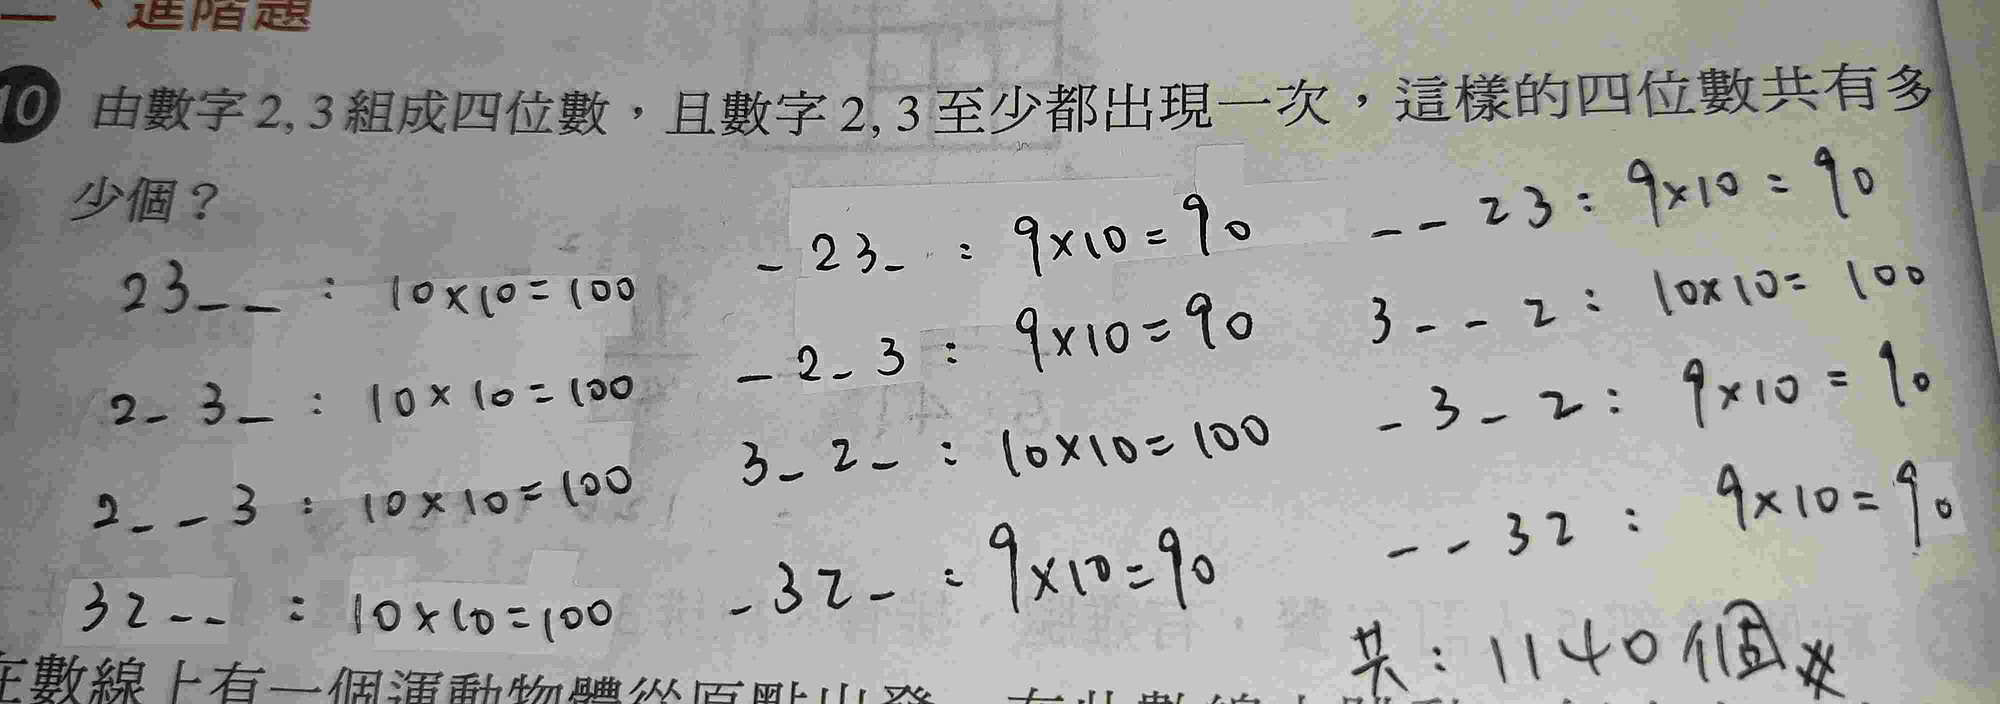 二、進階題
10 由數字2, 3組成四位數,且數字2, 3至少都出現一次,這樣的四位數共有多
少個?
23_ _ : 10×10=100
2_ 3_ : 10×10=100
2_ _3 : 10×10=100
32_ _ : 10×10=100
_23_ : 9×10=90
_2_3 : 9×10=90
3_2_ : 10×10=100
_32_ : 9×10=90
_ _23 : 9×10=90
3_ _2 : 10×10=100
_3_2 : 9×10=90
_ _32 : 9×10=90
共:1140個
在數線上有一個運動物體從原點出發